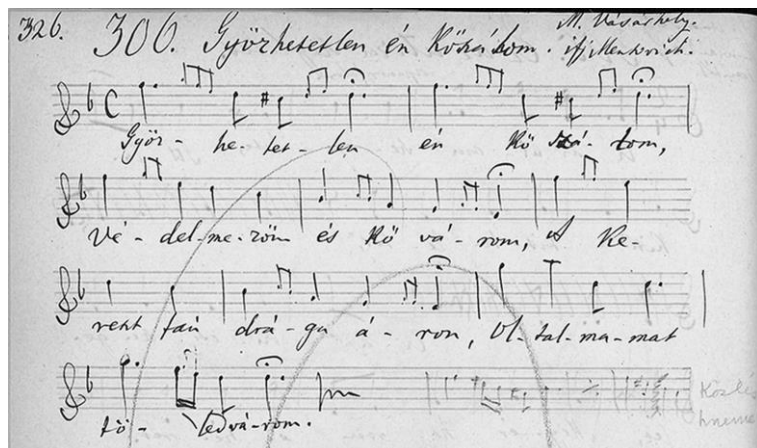 326. 306. Győrhetetlen én Kőszálom. M. Vásárhely.
ifj. Mentovich.
Győr-he-tet-len én Kő szá-tom,
Vé-del-me-zőm és Kő vá-rom, A Ke-
reszt fán drá-ga á-ron, Ol-tal-ma-mat
tő-led vá-rom.
Közlés